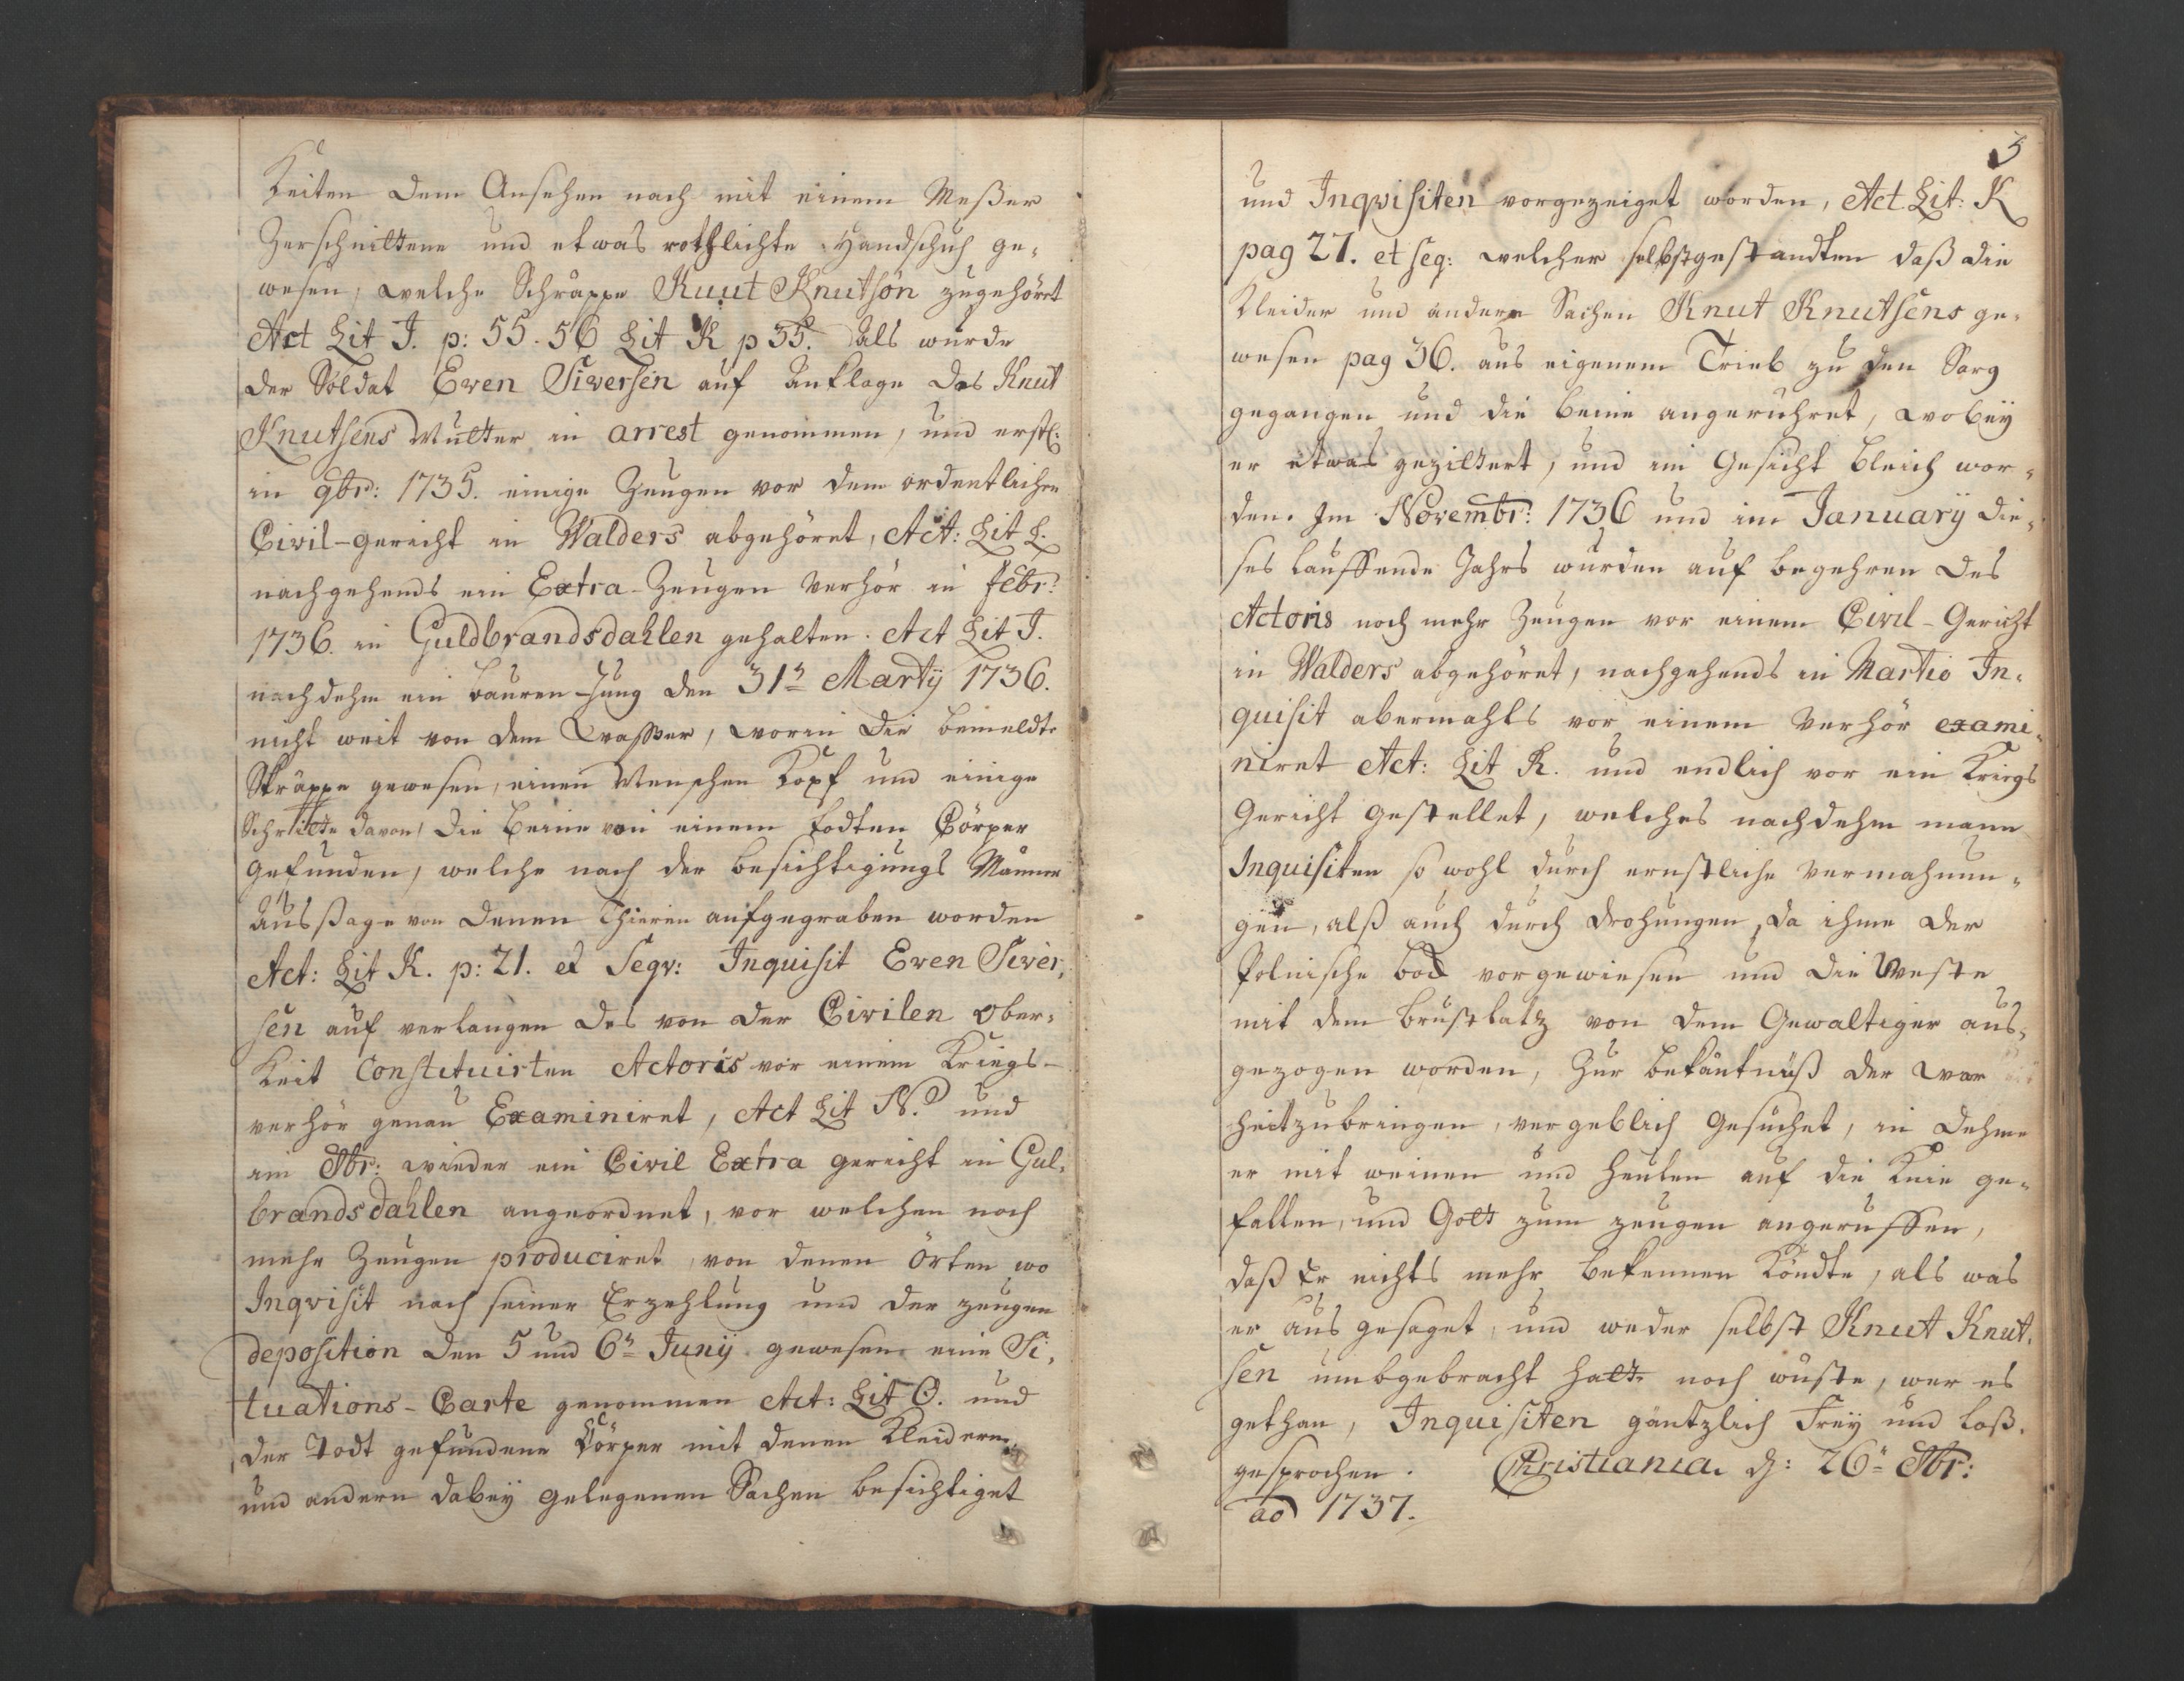 Keiten dem Ansehen nach mit einem Meßer
Zerschnittene und etwas rothlichte Handschuh ge-
wesen, welche Schräppe Knut Knutsön zugehöret
Act Lit J. p: 55. 56 Lit K p 35. Als wurde
der Soldat Even Siversen auf Anklage des Knut
Knutsens Mutter in arrest genommen, und erstl:
in 9br: 1735. einige Zeugen vor dem ordentlichen
Civil-gericht in Walders abgehöret, Act: Lit L.
nachgehends ein Extra-Zeugen Verhör in febr:
1736. in Guldbrandsdahlen gehalten. Act Lit J.
nachdehm ein bauren-Jung den 31n Martÿ 1736.
nicht weit von dem Waßer, worin die bemeldte
Skräppe gewesen, einen Menschen Kopf und einige
Schritte davon, die Beine von einem todten Cörper
gefunden, welche nach der besichtigungs Männer
Ausßage von denen Thieren aufgegraben worden
Act: Lit K. p: 21. et Seqv: Inquisit Even Siver-
sen auf verlangen des von der Civilen Ober-
keit Constituirten Actoris vor einem Kriegs-
verhör genau Examiniret, Act Lit N.o und
im 8br: wieder ein Civil Extra gericht in Gul-
brandsdahlen angeordnet, vor welchen noch
mehr Zeugen produciret, von denen Örten wo
Inqvisit nach seiner Erzehlung und der zeugen
deposition den 5 und 6n Junÿ gewesen eine Si-
tuations-Carte genommen Act: Lit O. und
der Todt gefundene Cörper mit denen Kleidern
und andern dabeÿ gelegenen Sachen besichtiget
3
und Inqvisiten vorgezeiget worden, Act Lit: K
pag 27. et seq: welcher selbst gestandten daß die
Kleider und andere Sachen Knut Knutsens ge-
wesen pag 36. aus eigenem Trieb zu den Sarg
gegangen und die beine angeruhret, wobeÿ
er etwas gezittert, und im Gesicht bleich wor-
den. Im Novembr: 1736 und im Januarÿ die-
ses lauffende Jahrs wurden auf begehren des
Actoris noch mehr Zeugen vor einem Civil-Gericht
in Walders abgehöret, nachgehends in Martio In-
quisit abermahls vor einem Verhör exami-
niret Act: Lit R. und endlich vor ein Kriegs
Gericht gestellet, welches nachdehm mann
Inquisiten so wohl durch ernstliche Vermahnun-
gen, alß auch durch drohungen, da ihme der
Polnische bod vorgewiesen und die Weste
mit dem brustlatz von dem Gewaltiger aus-
gezogen worden, Zur bekäntnüß der War
heit zu bringen, vergeblich gesuchet, in dehme
er mit weinen und heulen auf die Knie ge-
fallen, und Gott zum zeugen angeruffen,
daß Er nichts mehr bekennen Köndte, als was
er aus gesaget, und weder selbst Knut Knut-
sen umbgebracht hatte noch wüste, wer es
gethan, Inquisiten gäntzlich Freÿ und loß.
gesprochen. Christiania. d: 26n 8br:
ao 1737.